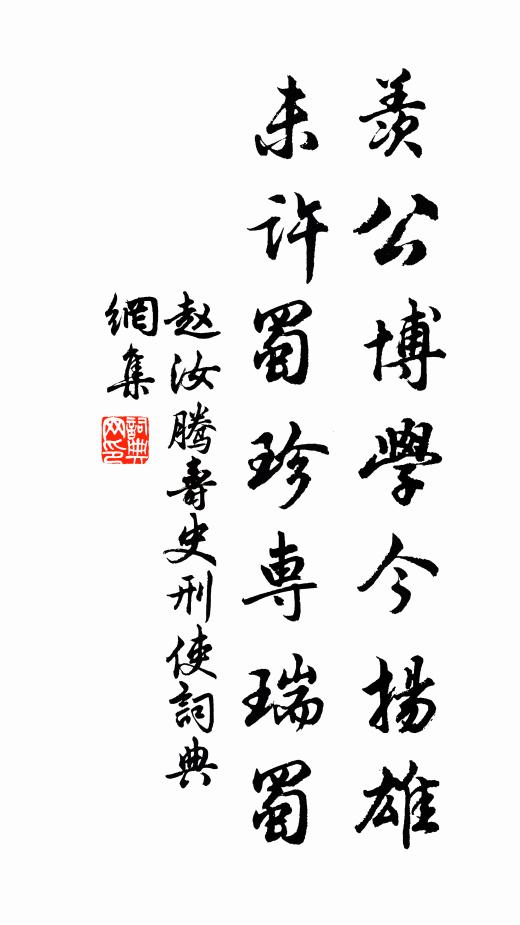 羨公博學今揚雄
未許蜀珍専瑞蜀
赵汝騰壽史刑使詞典
網集
詞典
网印